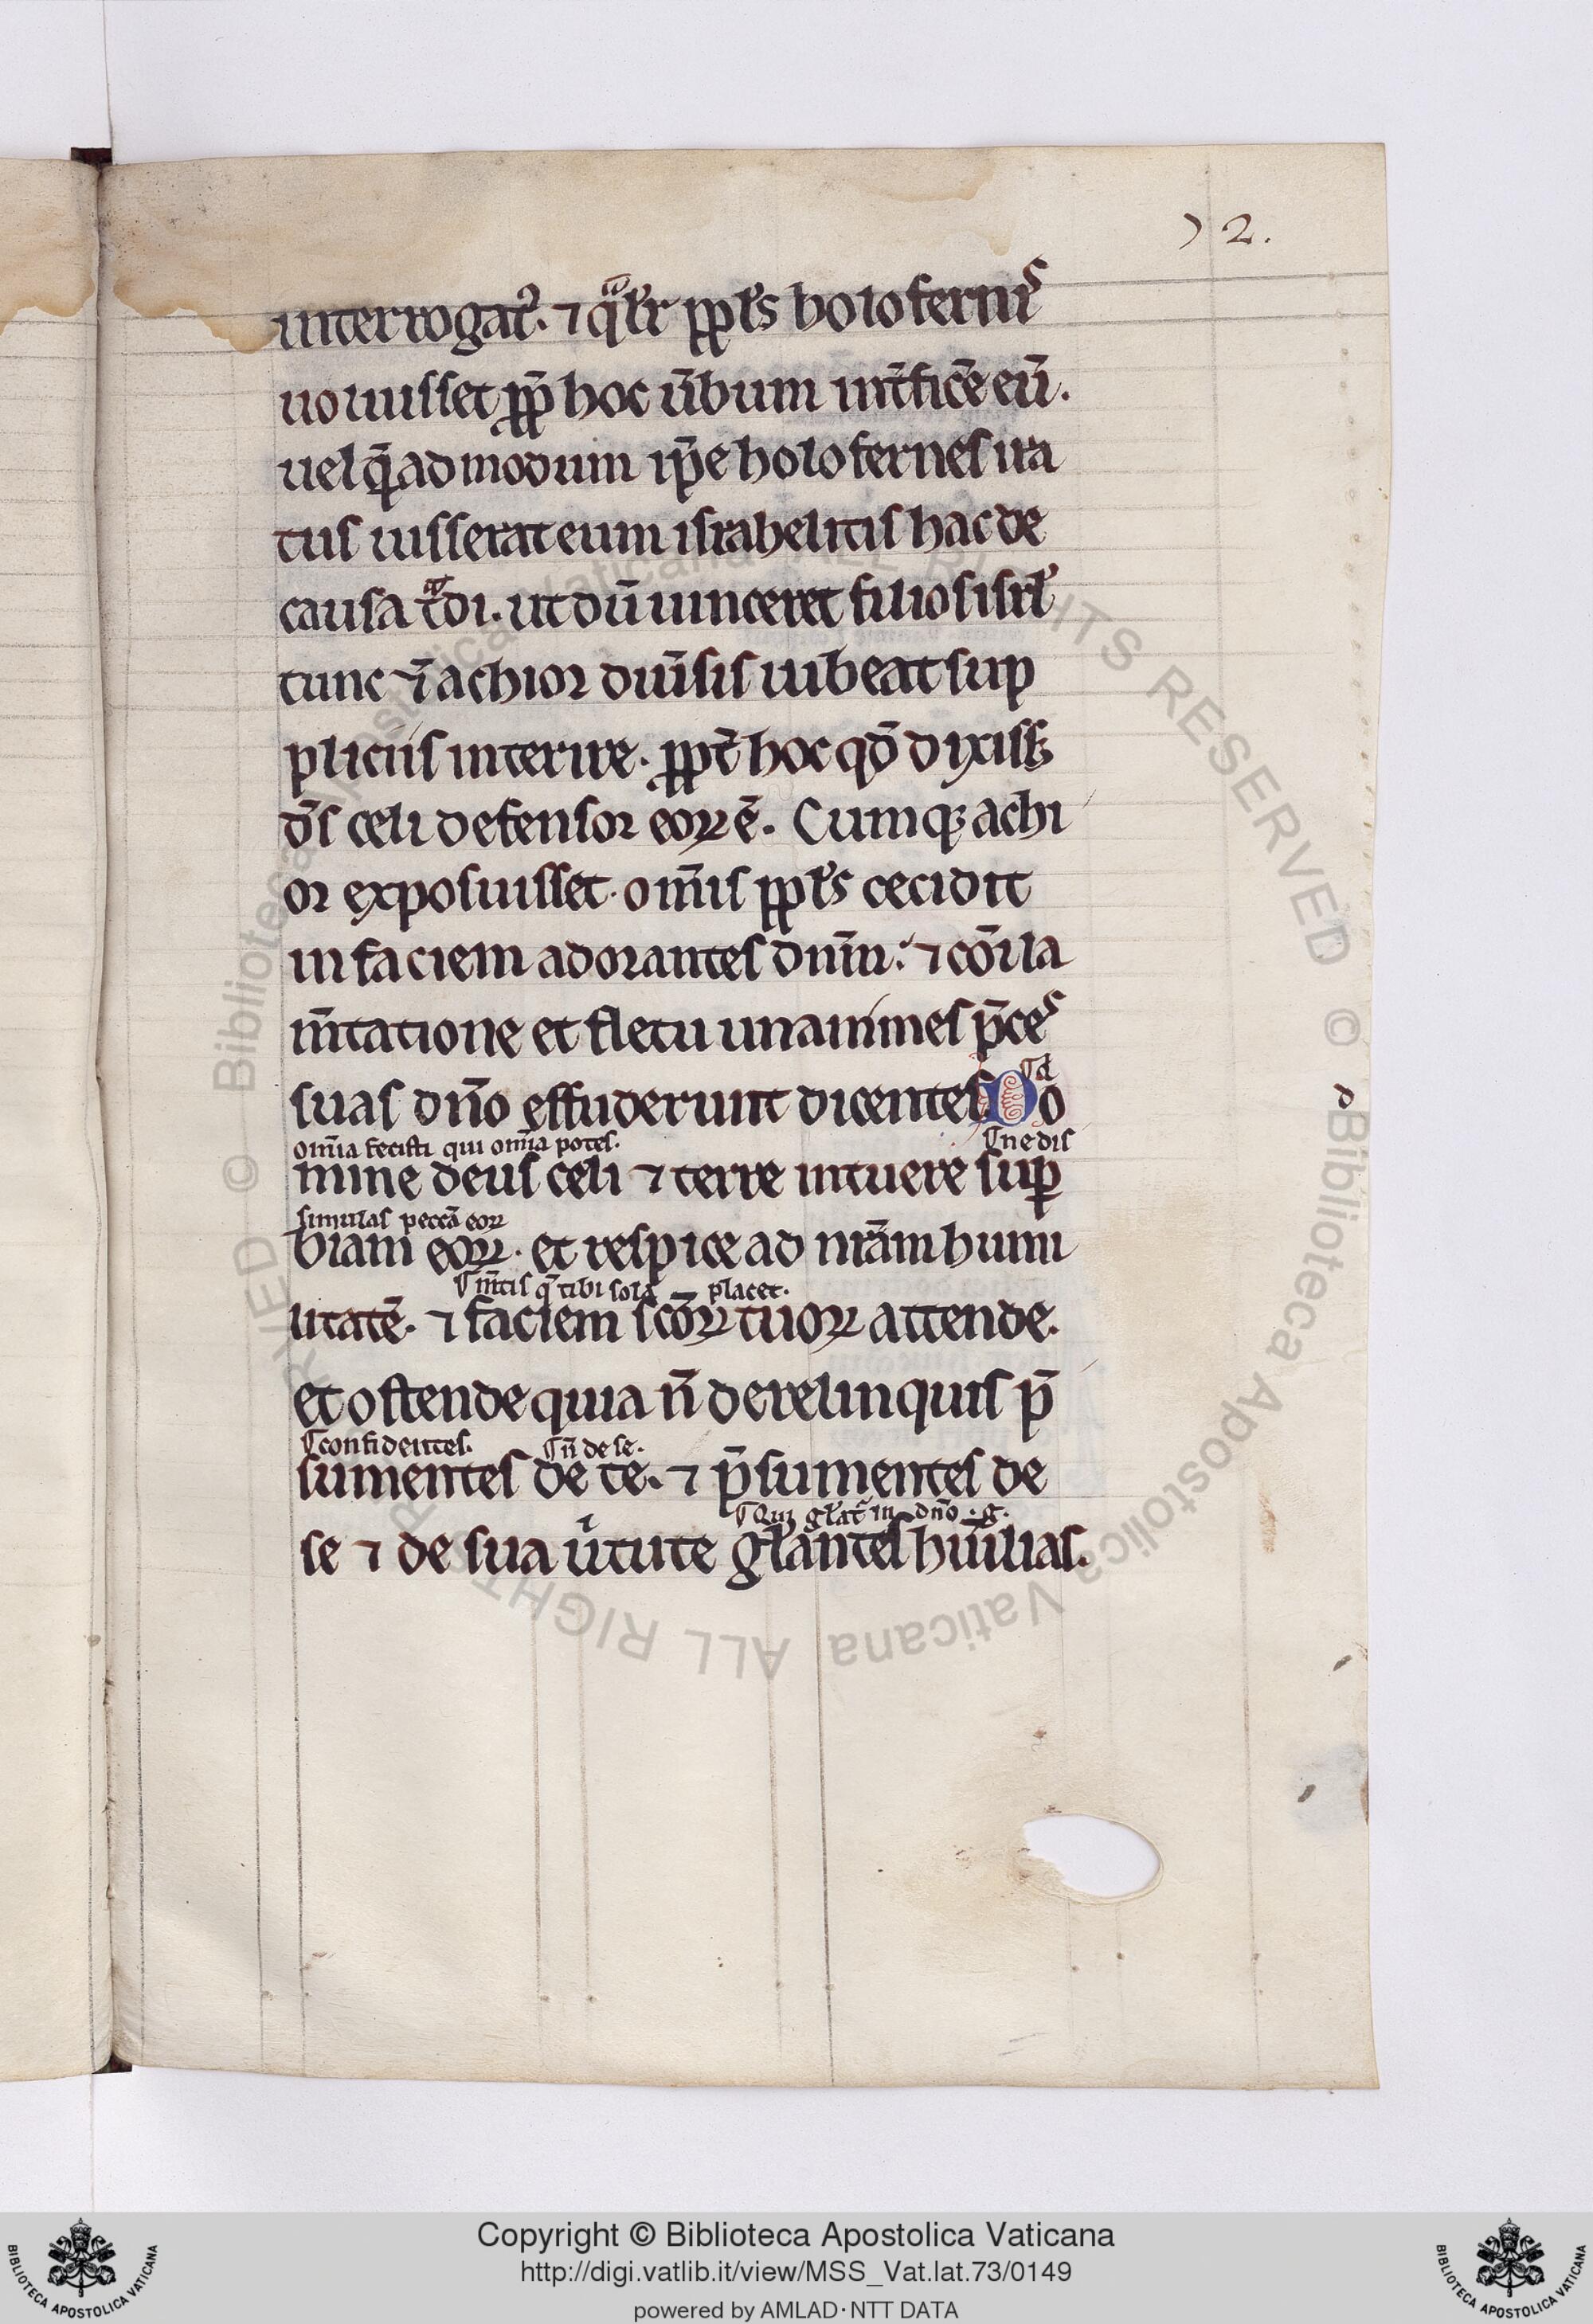 72.
interrogatꝰ. ⁊ qͣlit̾ ppl̾s holofernis
uoluisset ꝓpt̾ hoc ũbum int̾fic̾e eũ.
uel q̃admodum ip̃e holofernes ira
tus iusserat eum israhelitis hac de
causa tͣdi. ut dũ uinceret filios isrl̾
tunc ⁊ ip̃m achior diũsis iubeat sup
pliciis interire. ꝓpt̾ hoc qđ dixiss&
đs celi defensor eoꝝ ẽ. Cumqꝫ achi
or exposuisset. om̃is ppl̾s cecidit
in faciem adorantes dñm. ⁊ cõi la
m̃tatione et fletu unanimes p̃ces
suas dño effuderunt dicentes. Do
omĩa fecisti qui omĩa potes. ¶ne dis
mine deus celi ⁊ terre intuere suꝑ
simulas peccã eoꝝ
biam eoꝝ. et respice ad nr̃am humi
¶m̃tis q̃ tibi sola placet.
litatẽ. ⁊ faciem sc̃oꝝ tuoꝝ attende.
et ostende quia ñ derelinquis p̃
¶confidentes. ¶ñ de se.
sumentes de te. ⁊ p̃sumentes de
¶Qui gl̾at̾ in dño. g.
se ⁊ de sua uͥtute gl̾antes humilias.
Copyright © Biblioteca Apostolica Vaticana
http://digi.vatlib.it/view/MSS_Vat.lat.73/0149
powered by AMLAD·NTT DATA
BIBLIOTECA APOSTOLICA VATICANA
BIBLIOTECA APOSTOLICA VATICANA